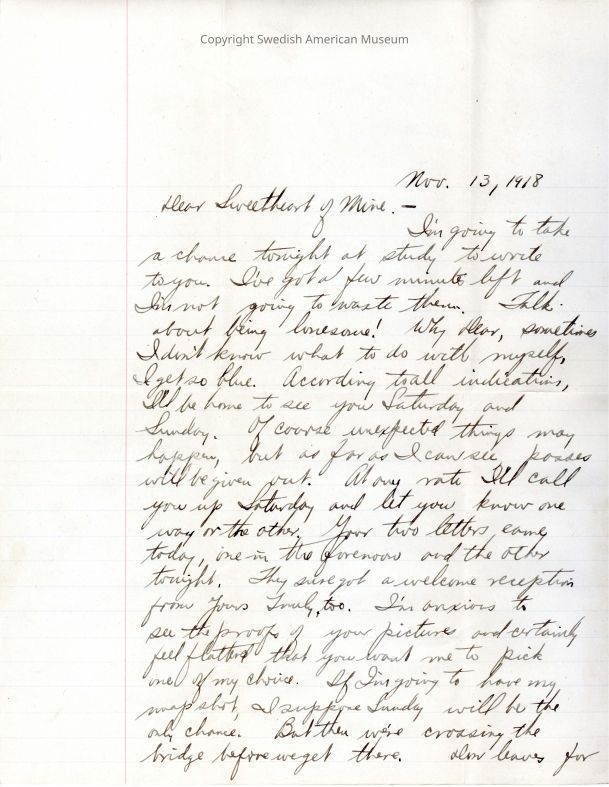 Copyright Swedish American Museum
Nov. 13, 1918
Dear Sweetheart of Mine. –
I'm going to take
a chance tonight at study to write
to you. I've got a few minutes left and
I'm not going to waste them. Talk
about being lonesome! Why dear, sometimes
I don't know what to do with myself,
I get so blue. According to all indications,
I'll be home to see you Saturday and
Sunday. Of course unexpected things may
happen, but as far as I can see passes
will be given out. At any rate I'll call
you up Saturday and let you know one
way or the other. Your two letters came
today, one in the forenoon and the other
tonight. They sure got a welcome reception
from Yours Truly, too. I'm anxious to
see the proofs of your pictures and certainly
feel flattered that you want me to pick
one of my choice. If I'm going to have my
snap shot, I suppose Sunday will be the
only chance. But then we're crossing the
bridge before we get there. leaves for